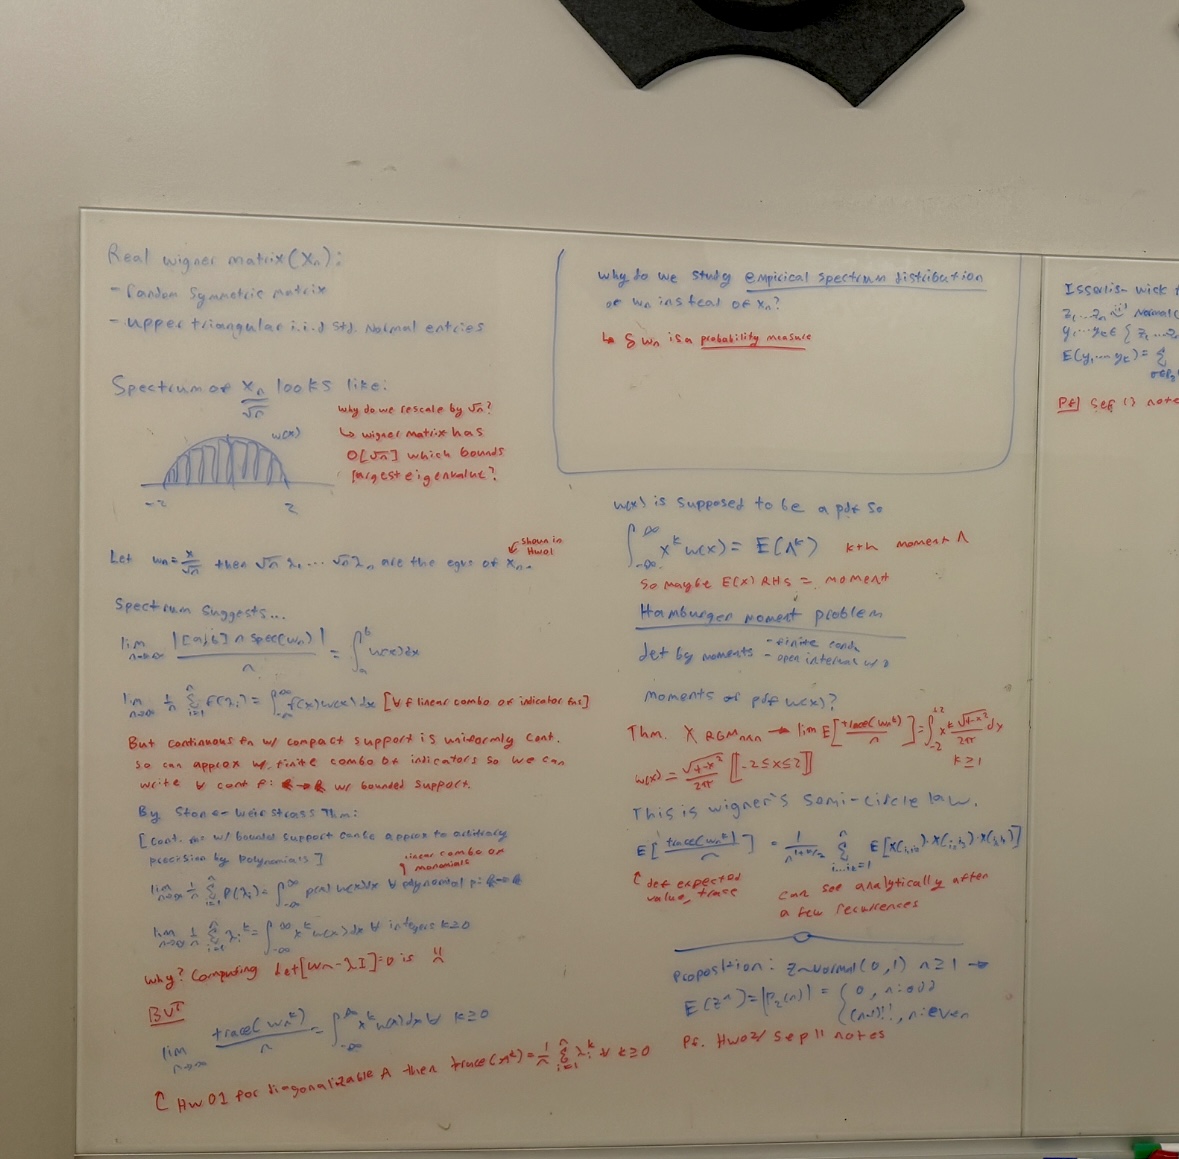 Real wigner matrix (Xₙ):
- random symmetric matrix
- upper triangular i.i.d std. normal entries
Spectrum of Xₙ/√n looks like:
w(x)
-2 2
why do we rescale by √n?
↳ wigner matrix has
O[√n] which bounds
largest eigenvalue?
Let wₙ = X/√n then √n λ₁ ... √n λₙ are the egvs of Xₙ.
shown in
Hw01
Spectrum suggests...
lim n→∞ |[a,b] ∩ spec(wₙ)| / n = ∫ₐᵇ w(x)dx
lim n→∞ 1/n Σᵢ₌₁ⁿ f(λᵢ) = ∫₋∞^∞ f(x)w(x)dx [∀ f linear combo of indicator fns]
But continuous fn w/ compact support is uniformly cont.
so can approx w/ finite combo of indicators so we can
write ∀ cont f: w/ bounded support.
By Stone-Weirstrass Thm:
[cont. fn: w/ bounded support can be approx to arbitrary
precision by polynomials]
linear combo of
monomials
lim n→∞ 1/n Σᵢ₌₁ⁿ P(λᵢ) = ∫₋∞^∞ p(x)w(x)dx ∀ polynomial p:
lim n→∞ 1/n Σᵢ₌₁ⁿ λᵢᵏ = ∫₋∞^∞ xᵏ w(x)dx ∀ integers k≥0
why? Computing det[wₙ-λI]=0 is
BUT
lim n→∞ trace(wₙᵏ)/n = ∫₋∞^∞ xᵏ w(x)dx ∀ k≥0
↑ Hw 01 for diagonalizable A then trace(Aᵏ) = 1/n Σᵢ₌₁ⁿ λᵢᵏ ∀ k≥0
why do we study empirical spectrum distribution
of wₙ instead of xₙ?
↳ δ wₙ is a probability measure
w(x) is supposed to be a pdf so
∫₋∞^∞ xᵏ w(x) = E(Λᵏ) kth moment Λ
so maybe E(x) RHS = moment
Hamburger moment problem
det by moments - finite cond
- open interval
moments of pdf w(x)?
Thm. X RGMₙₓₙ → lim E[trace(wₙᵏ)/n] = ∫₋₂⁺² xᵏ √(4-x²)/2π dx
k≥1
w(x) = √(4-x²)/2π [[-2≤x≤2]]
This is wigner's semi-circle law.
E[trace(wₙᵏ)/n] = 1/n^(1+k/2) Σ E[X(i₁i₂)·X(i₂i₃)·X(i₃i₄)]
↑ def expected
value, trace
can see analytically after
a few recurrences
Proposition: Z~Normal(0,1) n≥1 →
E(Zⁿ) = |P₂(n)| = { 0, n: odd
(n-1)!!, n: even
Pf. Hw02/ Sep 11 notes
Isserlis-wick
z₁...zₙ Normal(
y₁...yₖ ∈ { z₁...z
E(y₁...yₖ) = Σ
Pf] Sep 13 note